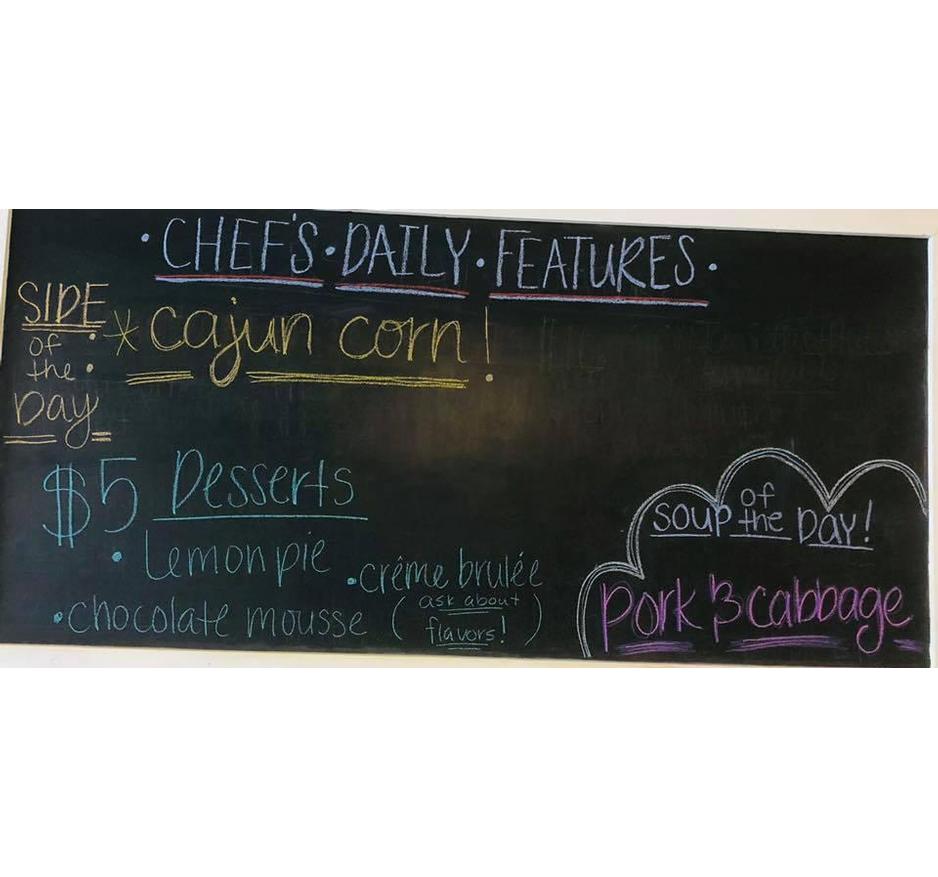 • CHEF'S • DAILY • FEATURES •
SIDE
of
the
Day
* cajun corn!
$5 Desserts
• Lemon pie
• chocolate mousse
• crême brulée
(ask about
flavors!)
SOUP of the DAY!
Pork & cabbage